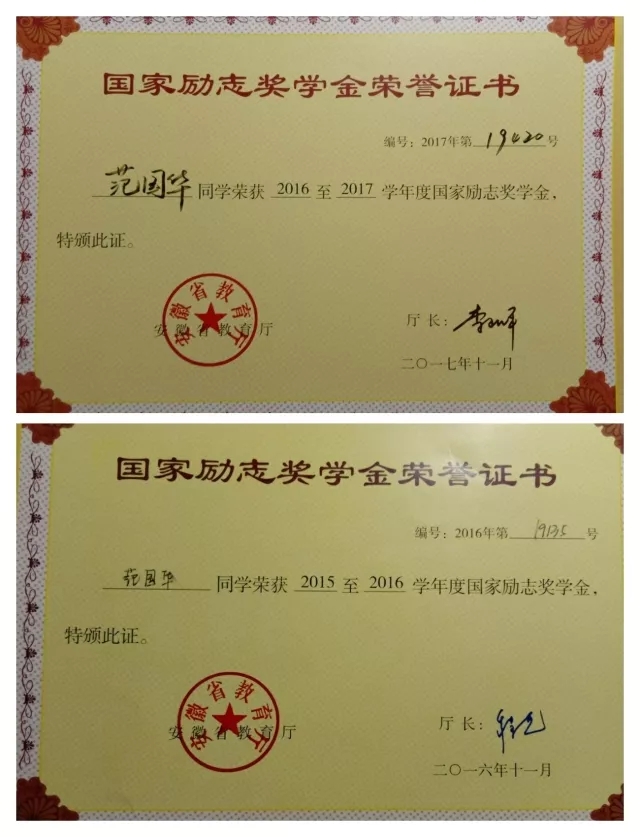 国家励志奖学金荣誉证书
编号：2017年第19420号
范国华同学荣获 2016 至 2017 学年度国家励志奖学金，
特颁此证。
安徽省教育厅
安徽省教育厅
厅长：
二〇一七年十一月
国家励志奖学金荣誉证书
编号：2016年第19135号
范国华同学荣获 2015 至 2016 学年度国家励志奖学金，
特颁此证。
安徽省教育厅
安徽省教育厅
厅长：
二〇一六年十一月